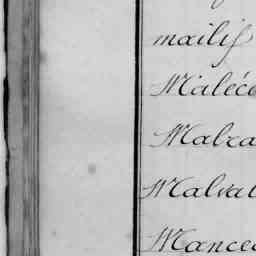 mailis
Maléc
Malra
Malval
Mance